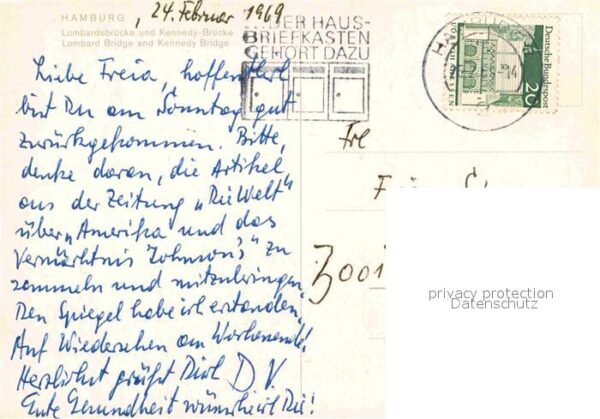 HAMBURG, 24. Februar 1969
Lombardsbrücke und Kennedy-Brücke
Lombard Bridge and Kennedy Bridge
DER HAUS-
BRIEFKASTEN
GEHÖRT DAZU
Deutsche Bundespost
20
Liebe Freia, hoffentlich
bist Du am Sonntag gut
zurückgekommen. Bitte,
denke daran, die Artikel
aus der Zeitung „Die Welt"
über „Amerika und das
Vermächtnis Johnson's" zu
sammeln und mitzubringen.
Den Spiegel habe ich erstanden.
Auf Wiedersehen am Wochenende!
Herzlichst grüßt Dich D. V.
Gute Gesundheit wünsche ich Dir!
Frl
privacy protection
Datenschutz